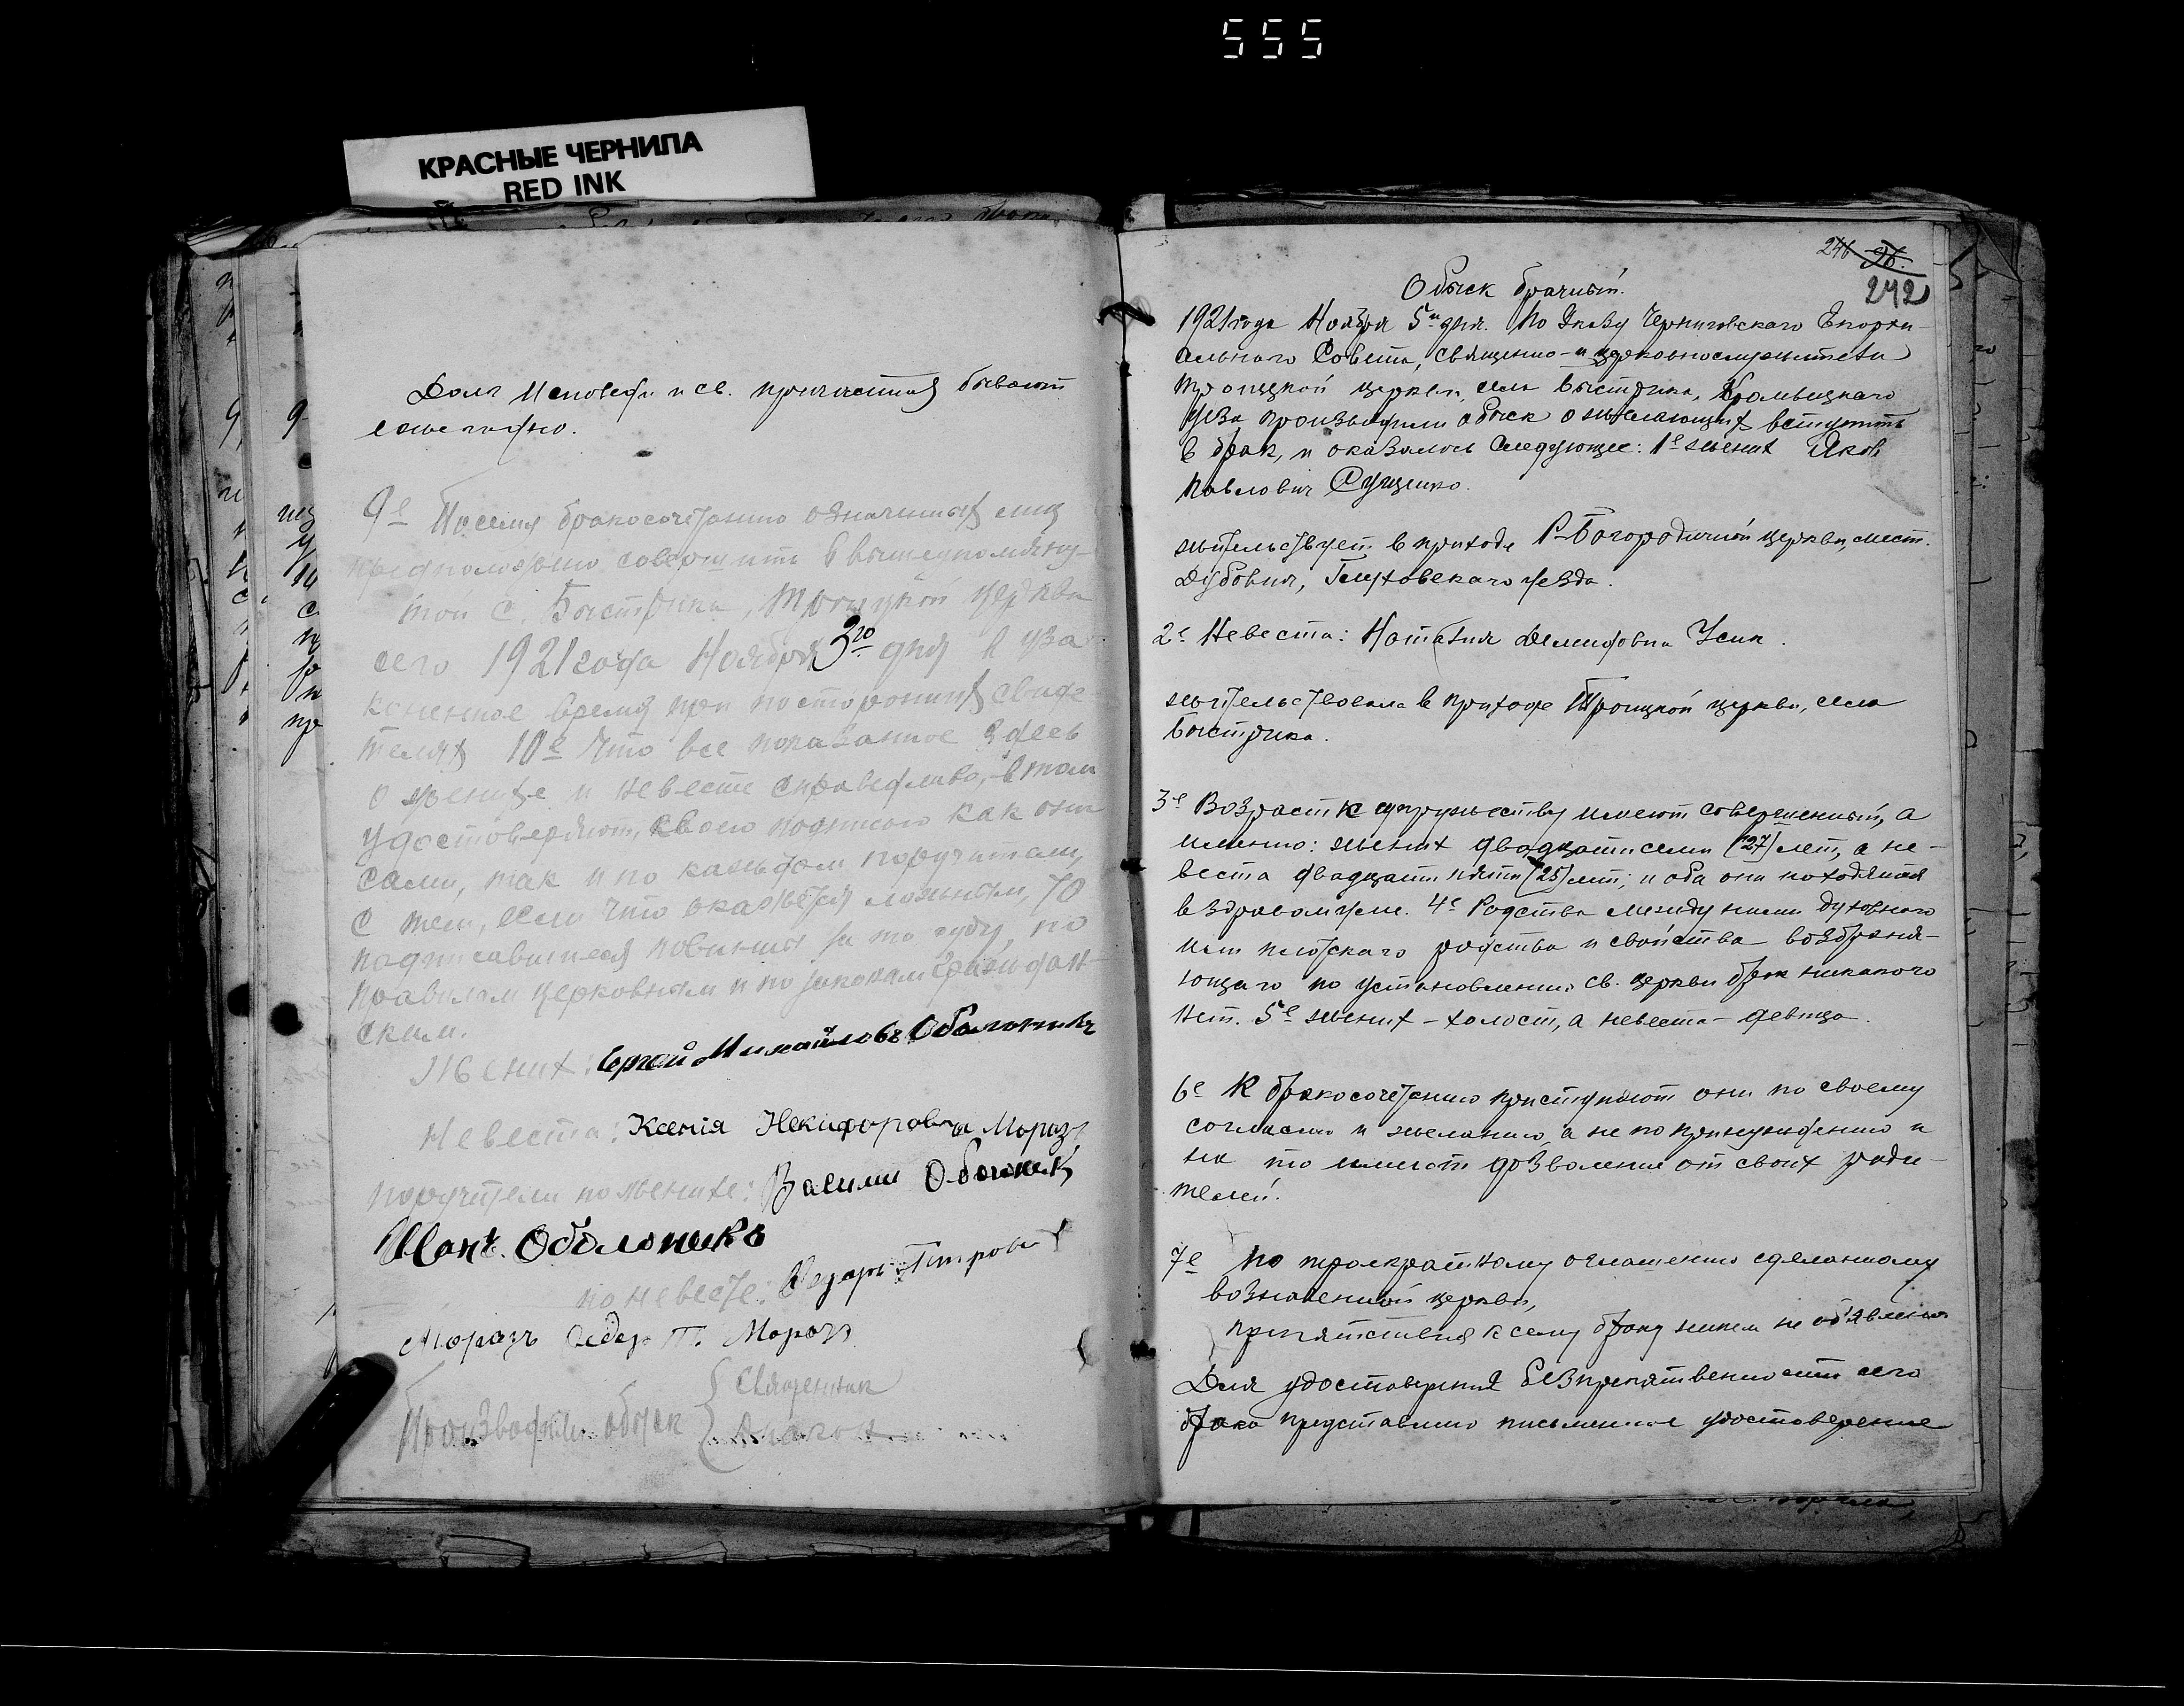 555
КРАСНЫЕ ЧЕРНИЛА
RED INK
Долг Исповеди и св. причастия бывают
ежегодно.
9е Посему бракосочетанию означенных лиц
предположено совершить в вышеупомяну-
той с. Быстрика Троицкой церкви
сего 1921 года Ноября 3го дня в уза
коненное время при посторонних свиде-
телях 10е Что все показанное здесь
о женихе и невесте справедливо, в том
удостоверяют своею подписью как они
сами, так и по каждом поручители,
с тем, если что окажется ложным, то
подписавшиеся повинны за то суду по
правилам церковным и по законам граждан-
ским.
Жених: Сергей Михайловъ Оболоникъ
Невеста: Ксенія Некифоровна Морозъ
поручители по женихе: Васили
Иванъ Оболоникъ
по невесте: Петрови
Морозъ П. Морозъ
Производили обыск { Священник
246 96.
242
Обыск брачный.
1921 года Ноября 5го дня. По Указу Черниговскаго Епархи-
альнаго Совета, священно- и церковнослужители
Троицкой церкви, села Быстрика, Кролевецкаго
уезда производили обыск о желающих вступить
в брак, и оказалось следующее: 1е жених Яков
Павлович Сущенко.
жительствует в приходе Р-Богородичной церкви, мест.
Дубовичи, Глуховскаго уезда.
2е Невеста: Наталия Демидовна Усик.
жительствовала в приходе Троицкой церкви, села
Быстрика.
3е Возраст к супружеству имеют совершенный, а
именно: жених двадцати семи (27) лет, а не-
веста двадцати пяти (25) лет; и оба они находятся
в здравом уме. 4е Родства между ними духовнаго
или плотскаго родства и свойства возбраня-
ющаго по установлению св. церкви брак никакого
нет. 5е жених – холост, а невеста – девица.
6е К бракосочетанию приступают они по своему
согласию и желанию, а не по принуждению и
на то имеют дозволение от своих роди-
телей.
7е По троекратному оглашению сделанному
в означенной церкви,
препятствия к сему браку никем не объявлено
Для удостоверения безпрепятственности сего
брака представлено письменное удостоверение